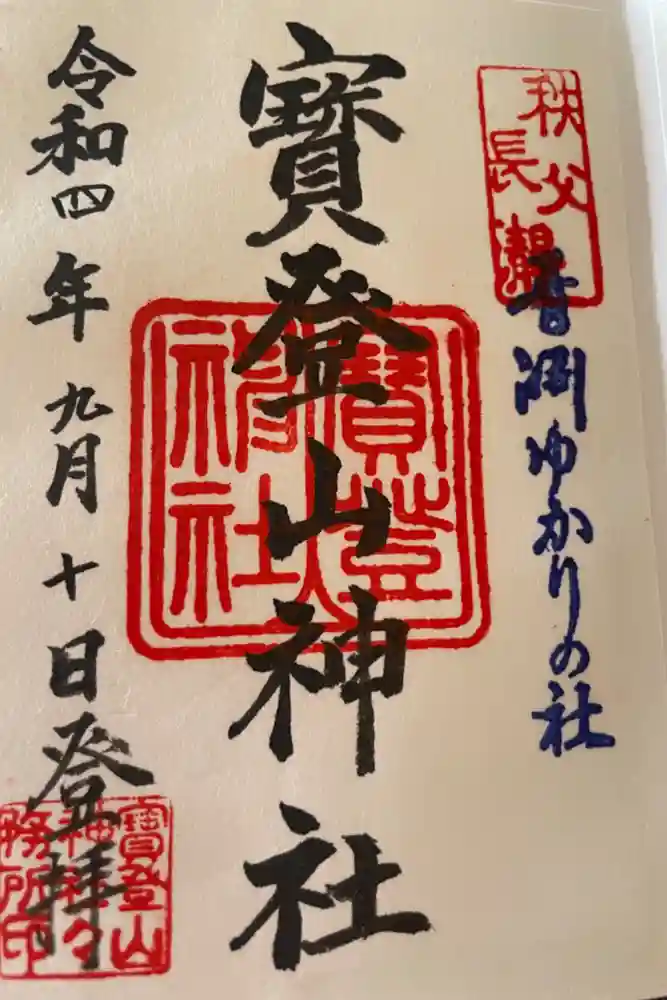 秩父
長瀞
青渕ゆかりの社
寶登山神社
寶登山
神社
令和四年九月十日登拝
寶登山
神社々
務所印